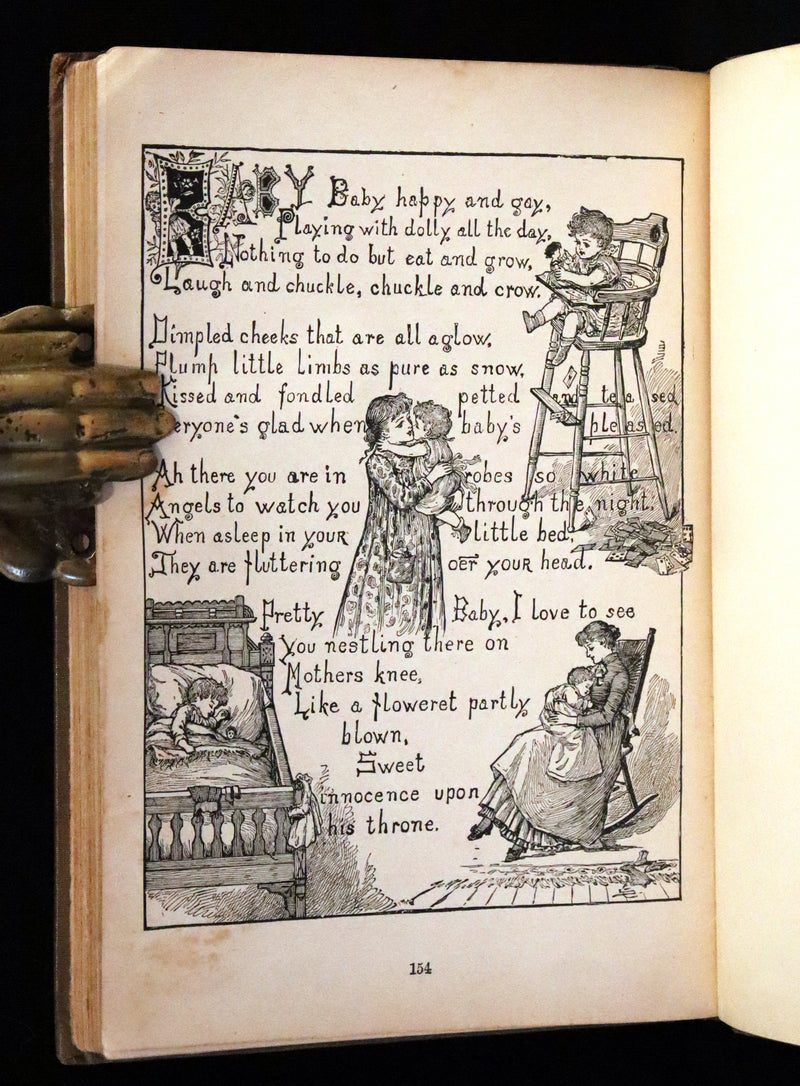 BABY Baby happy and gay,
Playing with dolly all the day,
Nothing to do but eat and grow,
Laugh and chuckle, chuckle and crow.
Dimpled cheeks that are all aglow,
Plump little limbs as pure as snow,
Kissed and fondled petted and teased,
eryone's glad when baby's pleased.
Ah there you are in robes so white
Angels to watch you through the night.
When asleep in your little bed,
They are fluttering oer your head.
Pretty Baby, I love to see
You nestling there on
Mothers knee,
Like a floweret partly
blown,
Sweet
innocence upon
his throne.
154